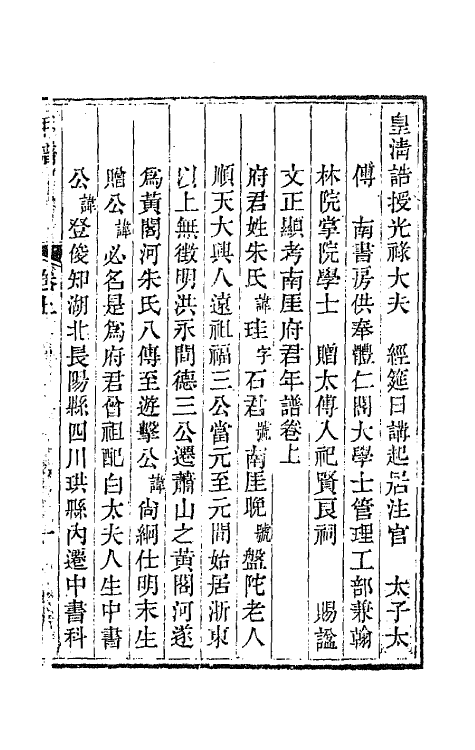 皇清誥授光祿大夫　經筵日講起居注官　太子太
傅　南書房供奉體仁閣大學士管理工部兼翰
林院掌院學士　贈太傅入祀賢良祠　賜諡
文正顯考南厓府君年譜卷上
府君姓朱氏諱珪字石君號南厓晚號盤陀老人
順天大興人遠祖福三公當元至元間始居浙東
以上無徵明洪永間德三公遷蕭山之黃閣河遂
爲黃閣河朱氏八傳至遊擊公諱尚絅仕明末生
贈公諱必名是爲府君曾祖配白太夫人生中書
公諱登俊知湖北長陽縣四川珙縣內遷中書科
年譜
卷上